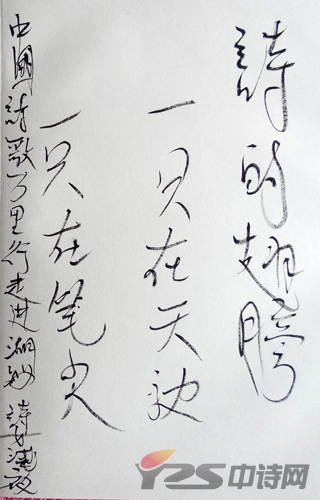 詩的翅膀
一只在天
一只在笔尖
中國詩歌万里行走进湖
YZS中诗网